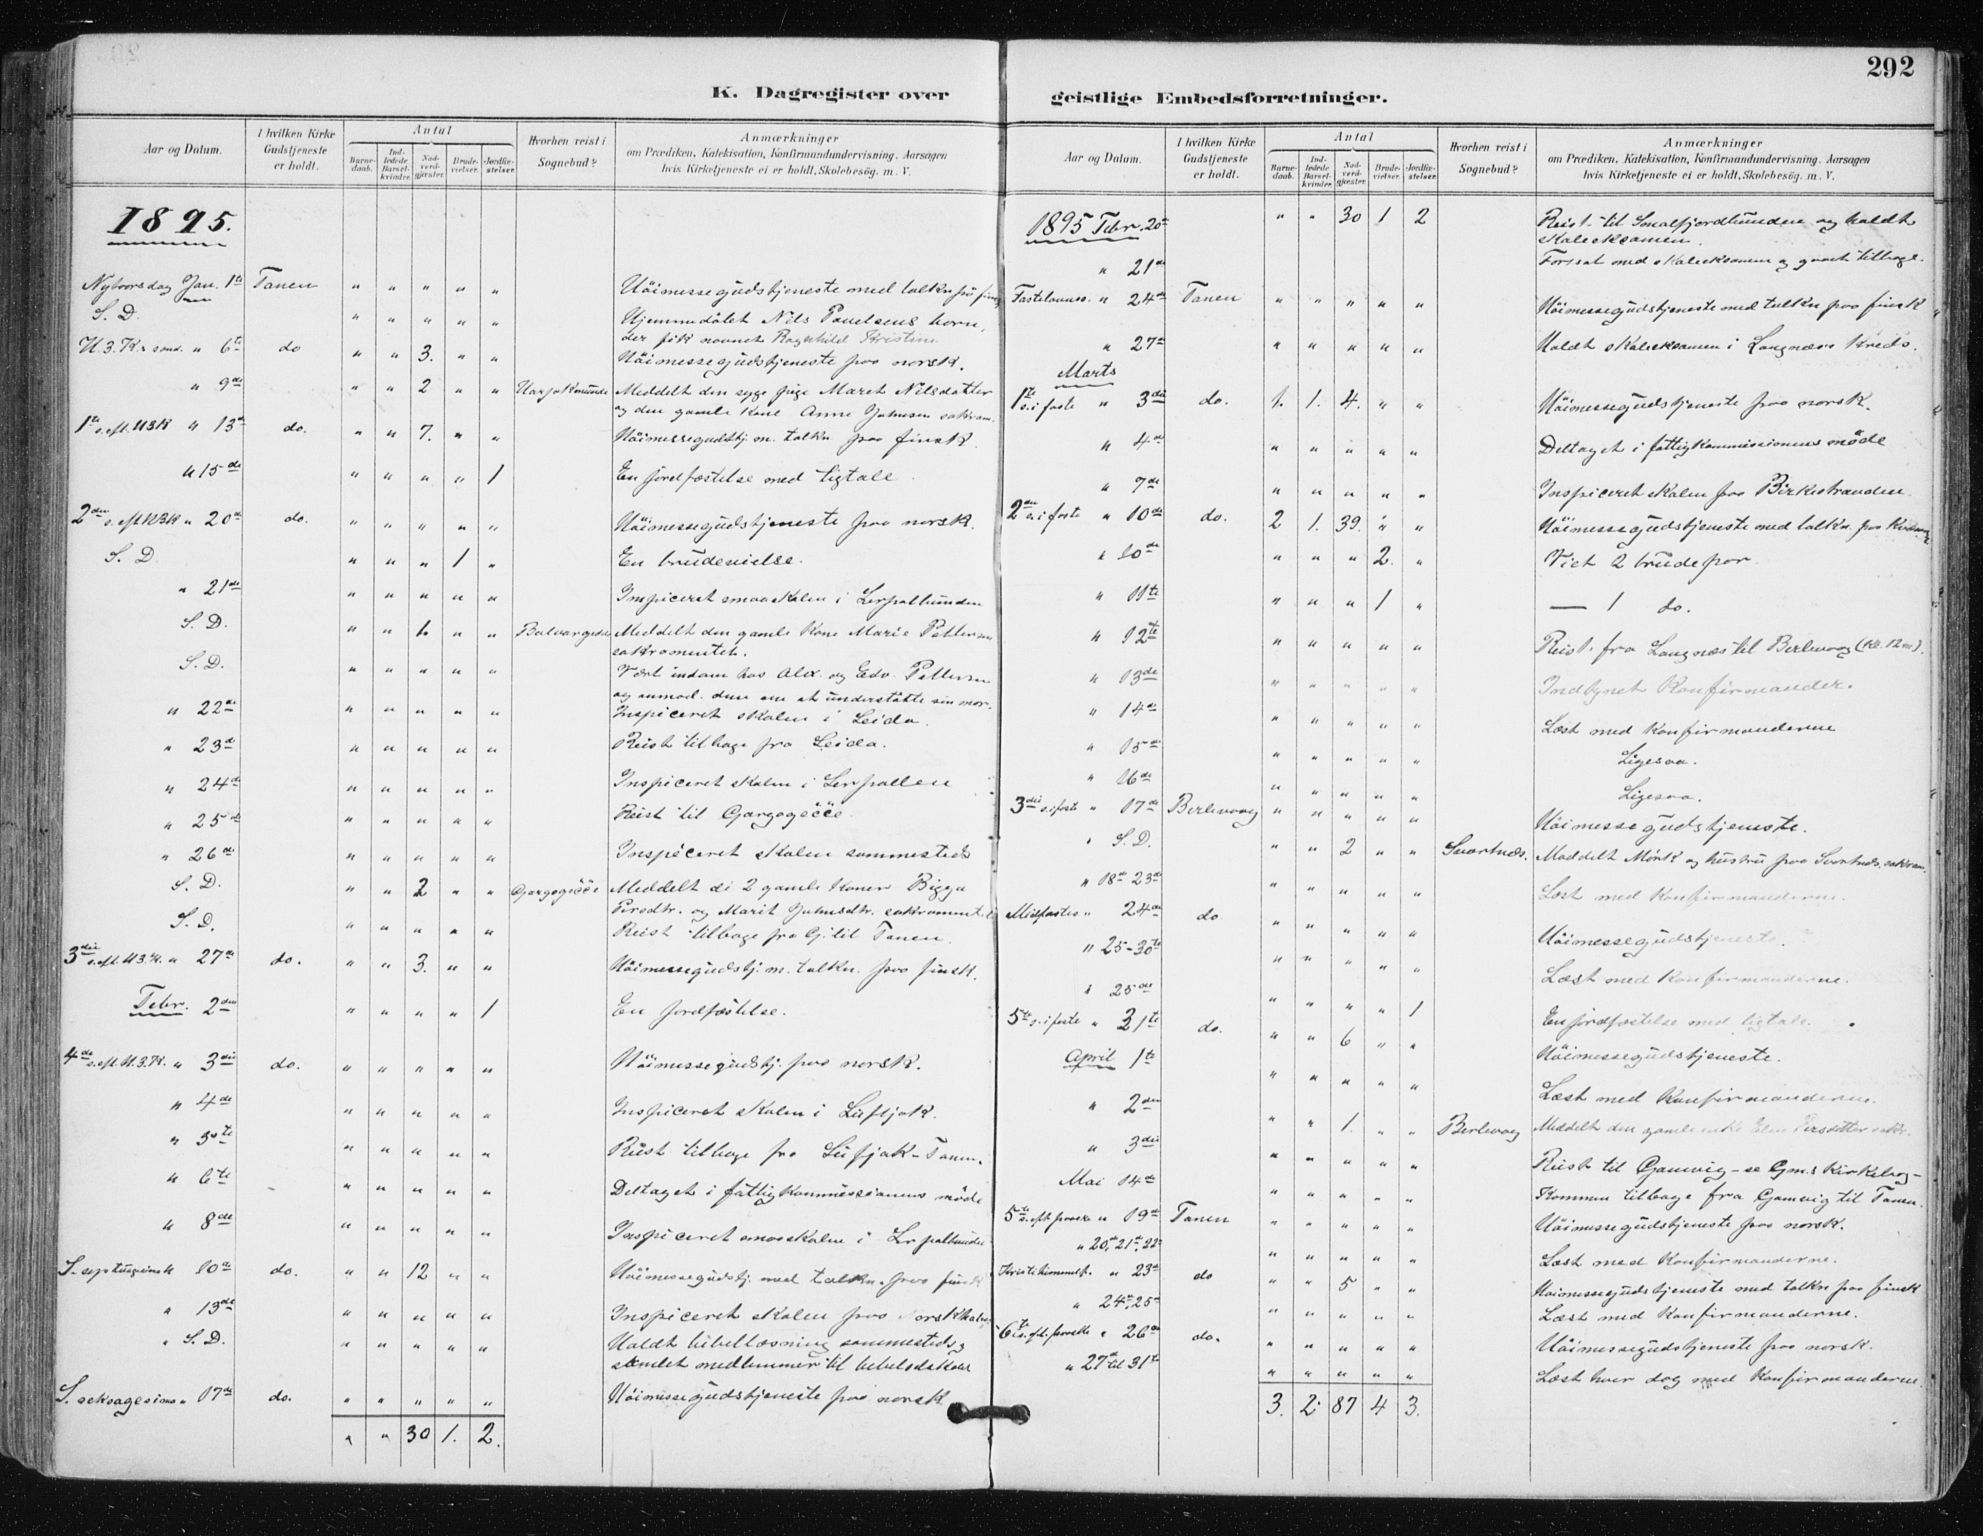 292
K. Dagregister over
geistlige Embedsforretninger.
Aar og Datum.
I hvilken Kirke Gudstjeneste er holdt.
Antal
Barne-daab.
Ind-ledede Barsel-kvinder.
Nad-verd-gjæster.
Brude-vielser.
Jordfæ-stelser.
Hvorhen reist i Sognebud?
Anmærkninger
om Prædiken, Katekisation, Konfirmandundervisning. Aarsagen
hvis Kirketjeneste ei er holdt, Skolebesøg. m. V.
1895.
Nytaarsdag Jan. 1ste Tanen " " " " " Höimessegudstjeneste med tolkn. paa finsk
S. D. " " " " " Hjemmedöbt Nils Pauelsens barn,
der fik navnet Ragnhild Kristine
H. 3. K. sönd. " 6te do " " 3. " " Höimessegudstjeneste paa norsk.
" 9de " " 2 " " Meddelt den syge pige Maret Nilsdatter
og den gamle kone Anne Johnsen sakram.
1ste s. eft. H3K " 13de do. " " 7. " " Höimessegudstj. m. tolkn. paa finsk.
" 15de " " " " 1 En jordfæstelse med ligtale.
2den s. eft. H3K " 20de do. " " " " " Höimessegudstjeneste paa norsk.
S. D. " " " 1 " En brudevielse.
" 21de " " " " " Inspiceret smaaskolen i Lerpolbunden
S. D. " " 1. " " Meddelt den gamle kone Marie Pettersen
sakramentet.
S. D. " " " " " Vært indom hos Alex. og Edv. Pettersen
og anmod. dem om at understötte sin mor.
" 22de " " " " " Inspiceret skolen i Leida.
" 23de " " " " " Reist tilbage fra Leida.
" 24de " " " " " Inspiceret skolen i Lerpollen
" 25de " " " " " Reist til Gargogečče.
" 26de " " " " " Inspiceret skolen sammesteds
S. D. " " 2 " " Gargogečče Meddelt de 2 gamle koner Bigga
Persdtr. og Marit Johnsdtr. sakramentet
S. D. " " " " " Reist tilbage fra G. til Tanen.
3die s. eft. H.3.K. " 27de do. " " 3. " " Höimessegudstj. m. tolkn. paa finsk.
Febr. 2den " " " " 1 En jordfæstelse.
4de s. eft. H.3.K. " 3die do. " " " " " Höimessegudstj. paa norsk.
" 4de " " " " " Inspiceret skolen i Luftjok.
" 5te " " " " " Reist tilbage fra Luftjok - Tanen.
" 6te " " " " " Deltaget i fattigkommissionens möde
" 8de " " " " " Inspiceret smaaskolen i Lerpolbunden
S. septuagesima 10de do. " " 12 " " Höimessegudstj. med tolkn. paa finsk
" 13de " " " " " Inspiceret skolen paa
" S. D. " " " " " Holdt bibellæsning sammesteds,
samlet medlemmer til
S. seksagesima " 17de do. " " " " " Höimessegudstjeneste paa norsk
" " 30 1. 2.
Aar og Datum.
I hvilken Kirke Gudstjeneste er holdt.
Antal
Barne-daab.
Ind-ledede Barsel-kvinder.
Nad-verd-gjæster.
Brude-vielser.
Jordfæ-stelser.
Hvorhen reist i Sognebud?
Anmærkninger
om Prædiken, Katekisation, Konfirmandundervisning. Aarsagen
hvis Kirketjeneste ei er holdt, Skolebesøg. m. V.
1895 Febr. 20de " " 30 1 2 Reist til Smalfjordbunden og holdt
skoleeksamen.
" 21de Fortsat med skoleeksamen og reist tilbage.
Fastelavnss. " 24de Tanen " " " " " Höimessegudstjeneste med tolkn paa finsk
" 27de " " " " " Holdt skoleeksamen i Langnæs kreds.
Marts
1ste s. i faste " 3die do. 1. 1. 4. " " Höimessegudstjeneste paa norsk.
" 4de " " " " " Deltaget i fattigkommissionens möde
" 7de " " " " " Inspiceret skolen paa Birkestranden
2den s. i faste " 10de do. 2 1. 39. " " Höimessegudstjeneste med tolkn. paa
" 10de " " " 2. " Viet 2 brudepar
" 11te " " " 1 " — 1 do.
" 12te " " " " " Reist fra Langnæs til Berlevaag (Kl. 12 m).
" 13de " " " " " Indtegnet konfirmander.
" 14de " " " " " Læst med konfirmanderne
" 15de " " " " " Ligesaa.
" 16de " " " " " Ligesaa.
3die s. i faste " 17de Berlevaag " " " " " Höimessegudstjeneste.
" S. D. " " 2 " " Svartnæs. Meddelt Mörk og hustru paa Svartnæs sakram.
" 18de 23de " " " " " Læst med konfirmanderne.
Midfastes " 24de do " " " " " Höimessegudstjeneste.
" 25-30te " " " " " Læst med konfirmanderne.
" 25de " " " " 1 En jordfæstelse med ligtale.
5te s. i faste " 31te do. " " 6 " " Höimessegudstjeneste.
April 1ste " " " " " Læst med konfirmanderne.
" 2den " " 1. " " Berlevaag Meddelt den gamle enke Elen Persdatter sakr.
" 3die " " " " " Reist til Gamvig - se Gms kirkebog -
Mai 14de " " " " " Kommen tilbage fra Gamvig til Tanen.
5te s. eft. paaske " 19de Tanen " " " " " Höimessegudstjeneste paa norsk.
" 20de, 21de, 22de " " " " " Læst med konfirmanderne.
Kristi himmelf. " 23de do " " 5 " " Höimessegudstjeneste med tolkn paa finsk
" 24de, 25de " " " " " Læst med konfirmanderne.
6te s. eft. paaske " 26de do. " " " " " Höimessegudstjeneste paa norsk.
" 27de til 31te " " " " " Læst hver dag med konfirmanderne.
3. 2. 87 4 3.